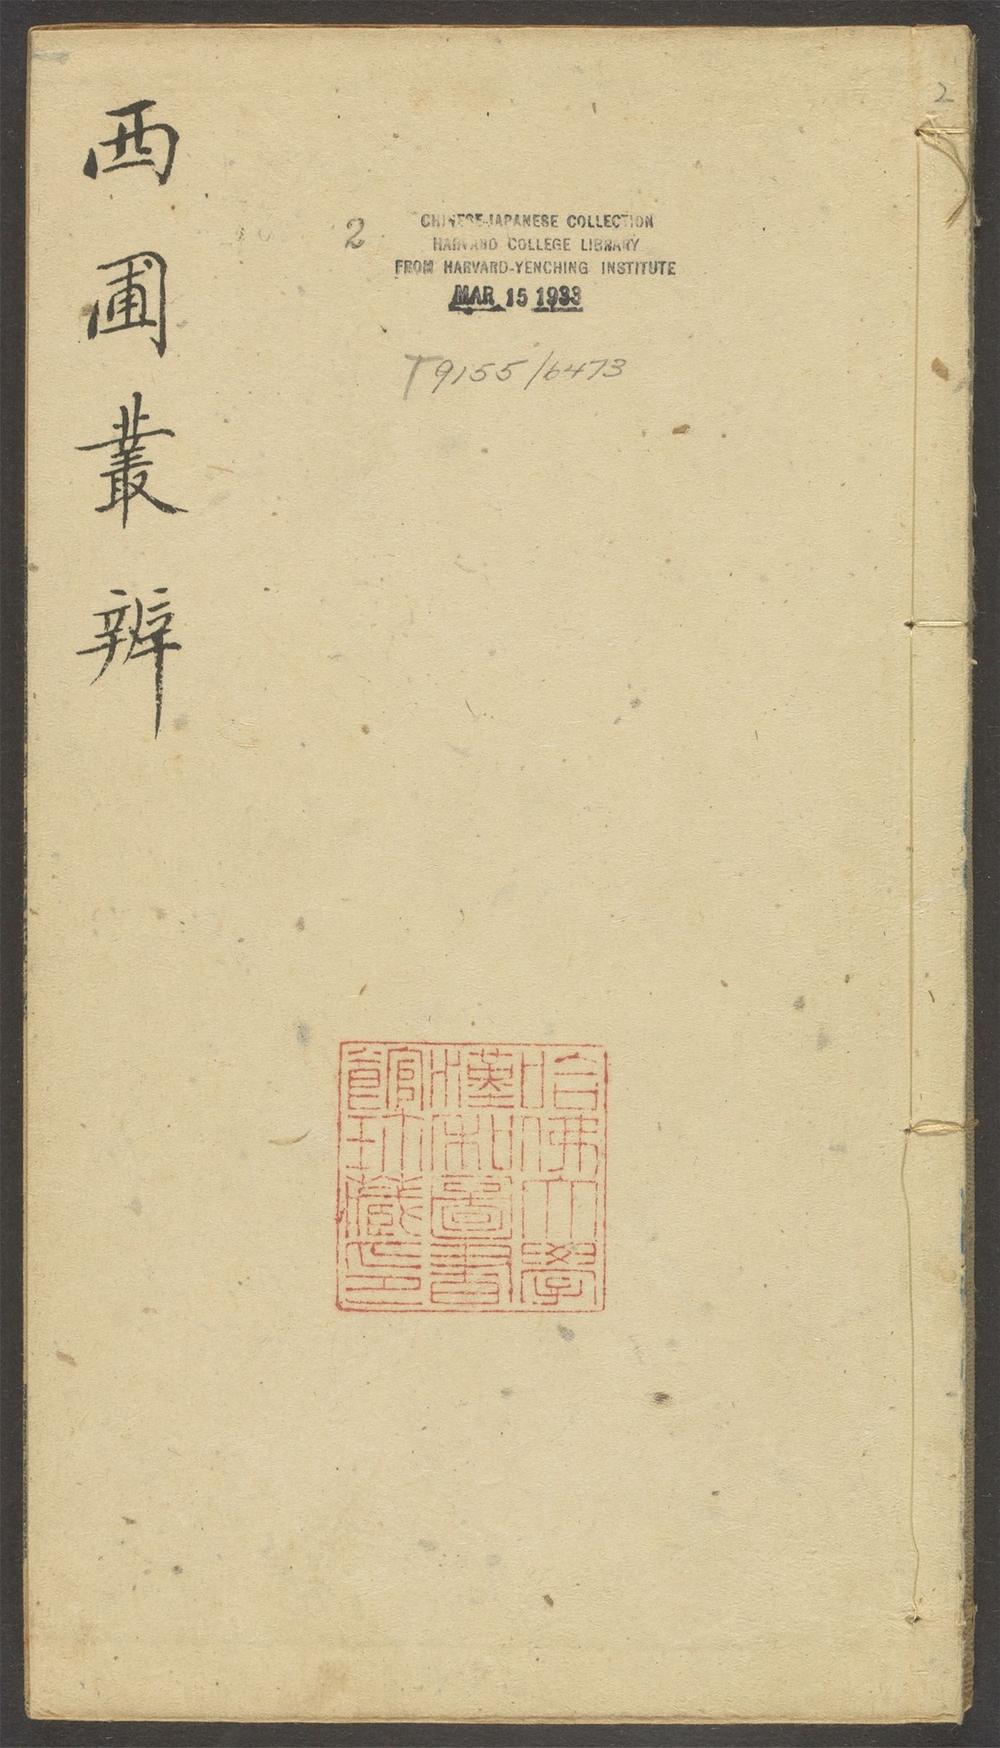 西圃叢辨
2
2
CHINESE-JAPANESE COLLECTION
HARVARD COLLEGE LIBRARY
FROM HARVARD-YENCHING INSTITUTE
MAR 15 1938
T9155/6473
哈佛大學
漢和圖書
館珍藏印